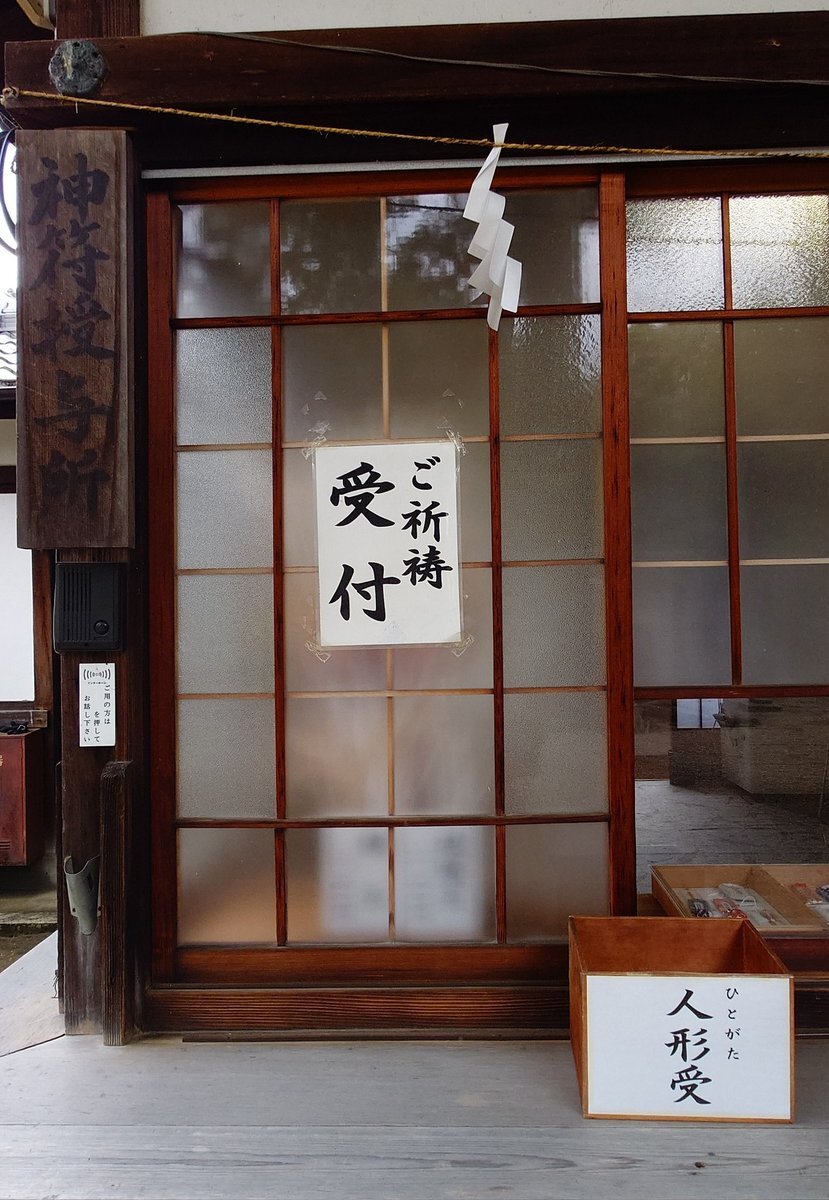 神符授与所
ご祈祷
受付
インターホーン
ご用の方は
を押して
お話し下さい
ひとがた
人形受